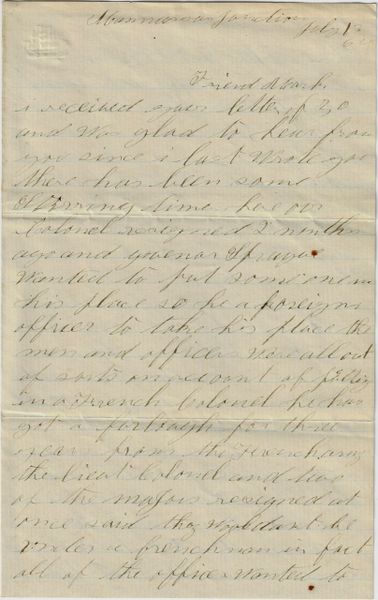 Mannassas Junction
July 1
Friend Mark
i received your letter of 30
and was glad to hear from
you since i last wrote you
there has been some
Stirring time here our
Colonel resigned 2 months
ago and govenor Sprague
wanted to put some one in
his place so he a foreign
officer to take his place the
men and officers were all out
of sorts on account of putting
in a French Colonel he has
got a furlough for three
years from the French army
the Lieut Colonel and two
of the majors resigned at
once said they wouldant be
under a frenchman in fact
all of the office wanted to